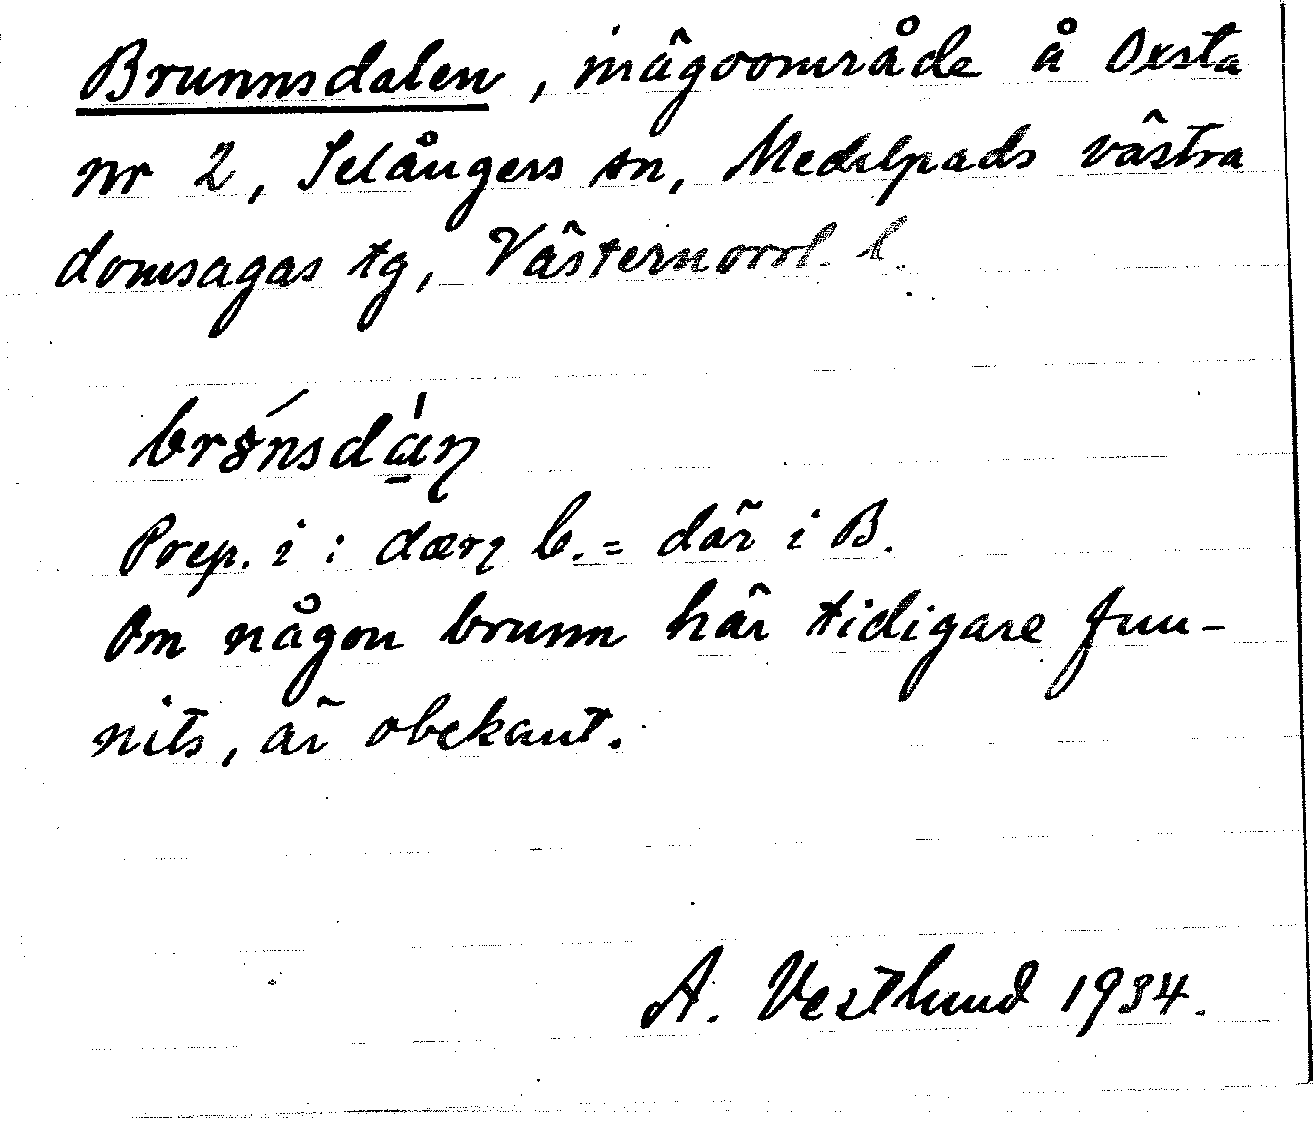 Brunnsdalen, inägoområde å Oxsta
nr 2, Selångers sn, Medelpads västra
domsagas tg, Västernorrl. l.
br8́nsda̠̍ŋ
Prep. i : dærŋ b. = där i B.
Om någon brunn här tidigare fun-
nits, är obekant.
A. Vestlund 1934.